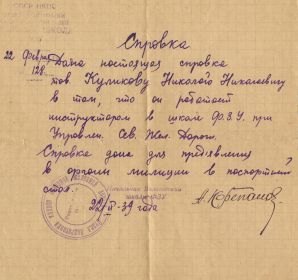 СССР НКПС
Справка
22 Феврал
128.
Дана настоящая справка
тов Куликову Николаю Николаевичу
в том, что он работает
инструктором в школе Ф.З.У. при
Управлен. Сев. Жел. Дороги.
Справка дана для предъявления
в органы милиции в паспортный
стол.
22/II-39 года